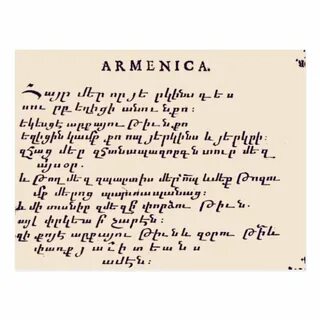 ARMENICA.
Հայր մեր որ յերկինս ես
սուրբ եղիցի անուն քո
եկեսցէ արքայութիւն քո
եղիցին կամք քո որպ յերկինս և յերկրի:
զհաց մեր զհանապազորդ տուր մեզ
այսօր.
և թող մեզ զպարտիս մեր որպ և մեք թողումք մերոց պարտապանաց:
և մի տանիր զմեզ ի փորձութիւն.
այլ փրկեա ի չարէն:
զի քո է արքայութիւն և զօրութիւն
փառք յաւիտեանս
ամէն: